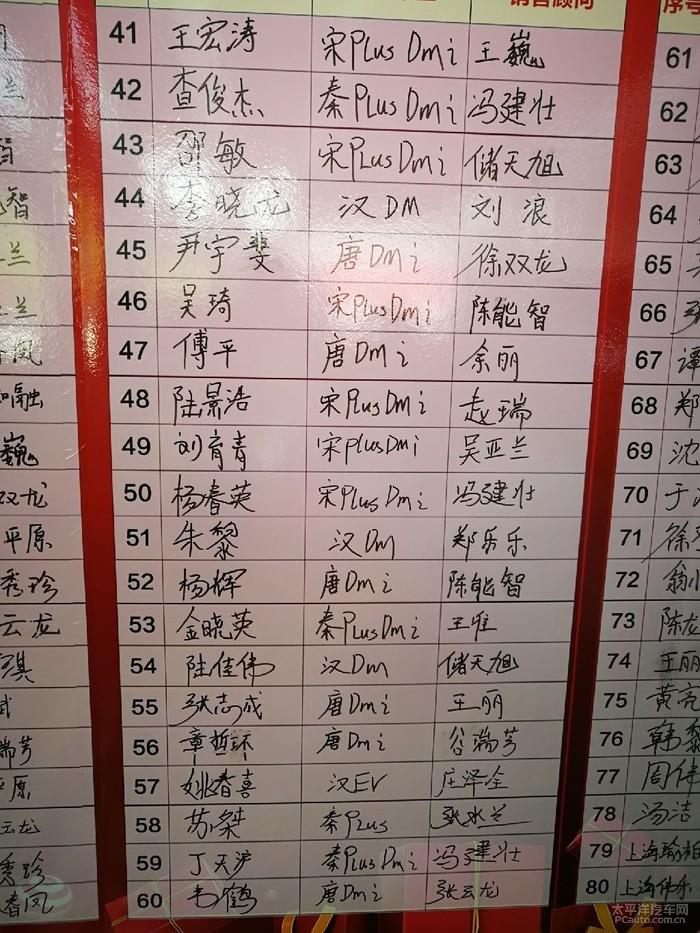 销售顾问
序号
41 王宏涛 宋Plus Dmi 王巍 61
42 查俊杰 秦Plus Dmi 冯建壮 62
43 邵敏 宋Plus Dmi 储天旭 63
智 44 李晓元 汉DM 刘浪 64
兰 45 尹宇斐 唐Dmi 徐双龙 65
兰 46 吴琦 宋Plus Dmi 陈能智 66
凤 47 傅平 唐Dmi 余丽 67 谭
融 48 陆景浩 宋Plus Dmi 赵瑞 68 郑
巍 49 刘育青 宋Plus Dmi 吴亚兰 69 沈
双龙 50 杨春英 宋Plus Dmi 冯建壮 70 于
平原 51 朱黎 汉Dm 郑乐乐 71 徐
秀珍 52 杨辉 唐Dmi 陈能智 72 翁
云龙 53 金晓英 秦Plus Dmi 王唯 73 陈龙
琪 54 陆佳伟 汉Dm 储天旭 74 王丽
斌 55 张志成 唐Dmi 王丽 75 黄亮
瑞芳 56 章哲环 唐Dmi 谷瑞芳 76 韩黎
原 57 姚春喜 汉EV 庄泽全 77 周伟
云龙 58 苏桀 秦Plus 张水兰 78 汤洁
秀珍 59 丁天沪 秦Plus Dmi 冯建壮 79 上海瑜柏
春凤 60 韦鹤 唐Dmi 张云龙 80 上海伟乐
太平洋汽车网
PCauto.com.cn